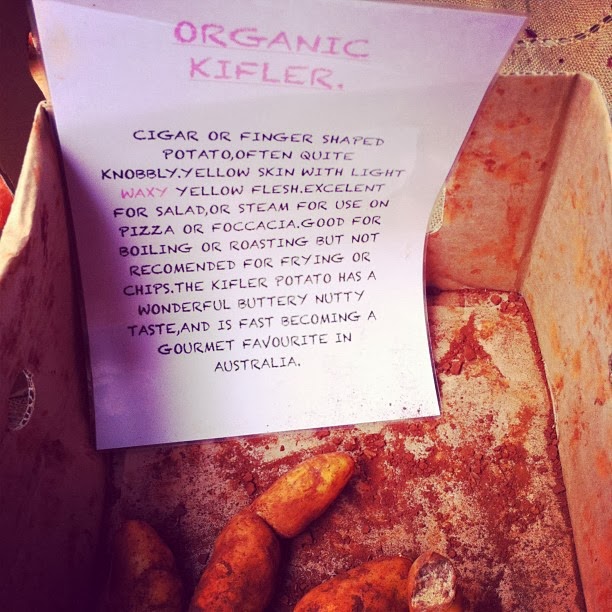 ORGANIC
KIFLER.
CIGAR OR FINGER SHAPED
POTATO,OFTEN QUITE
KNOBBLY.YELLOW SKIN WITH LIGHT
WAXY YELLOW FLESH.EXCELENT
FOR SALAD,OR STEAM FOR USE ON
PIZZA OR FOCCACIA.GOOD FOR
BOILING OR ROASTING BUT NOT
RECOMENDED FOR FRYING OR
CHIPS.THE KIFLER POTATO HAS A
WONDERFUL BUTTERY NUTTY
TASTE,AND IS FAST BECOMING A
GOURMET FAVOURITE IN
AUSTRALIA.